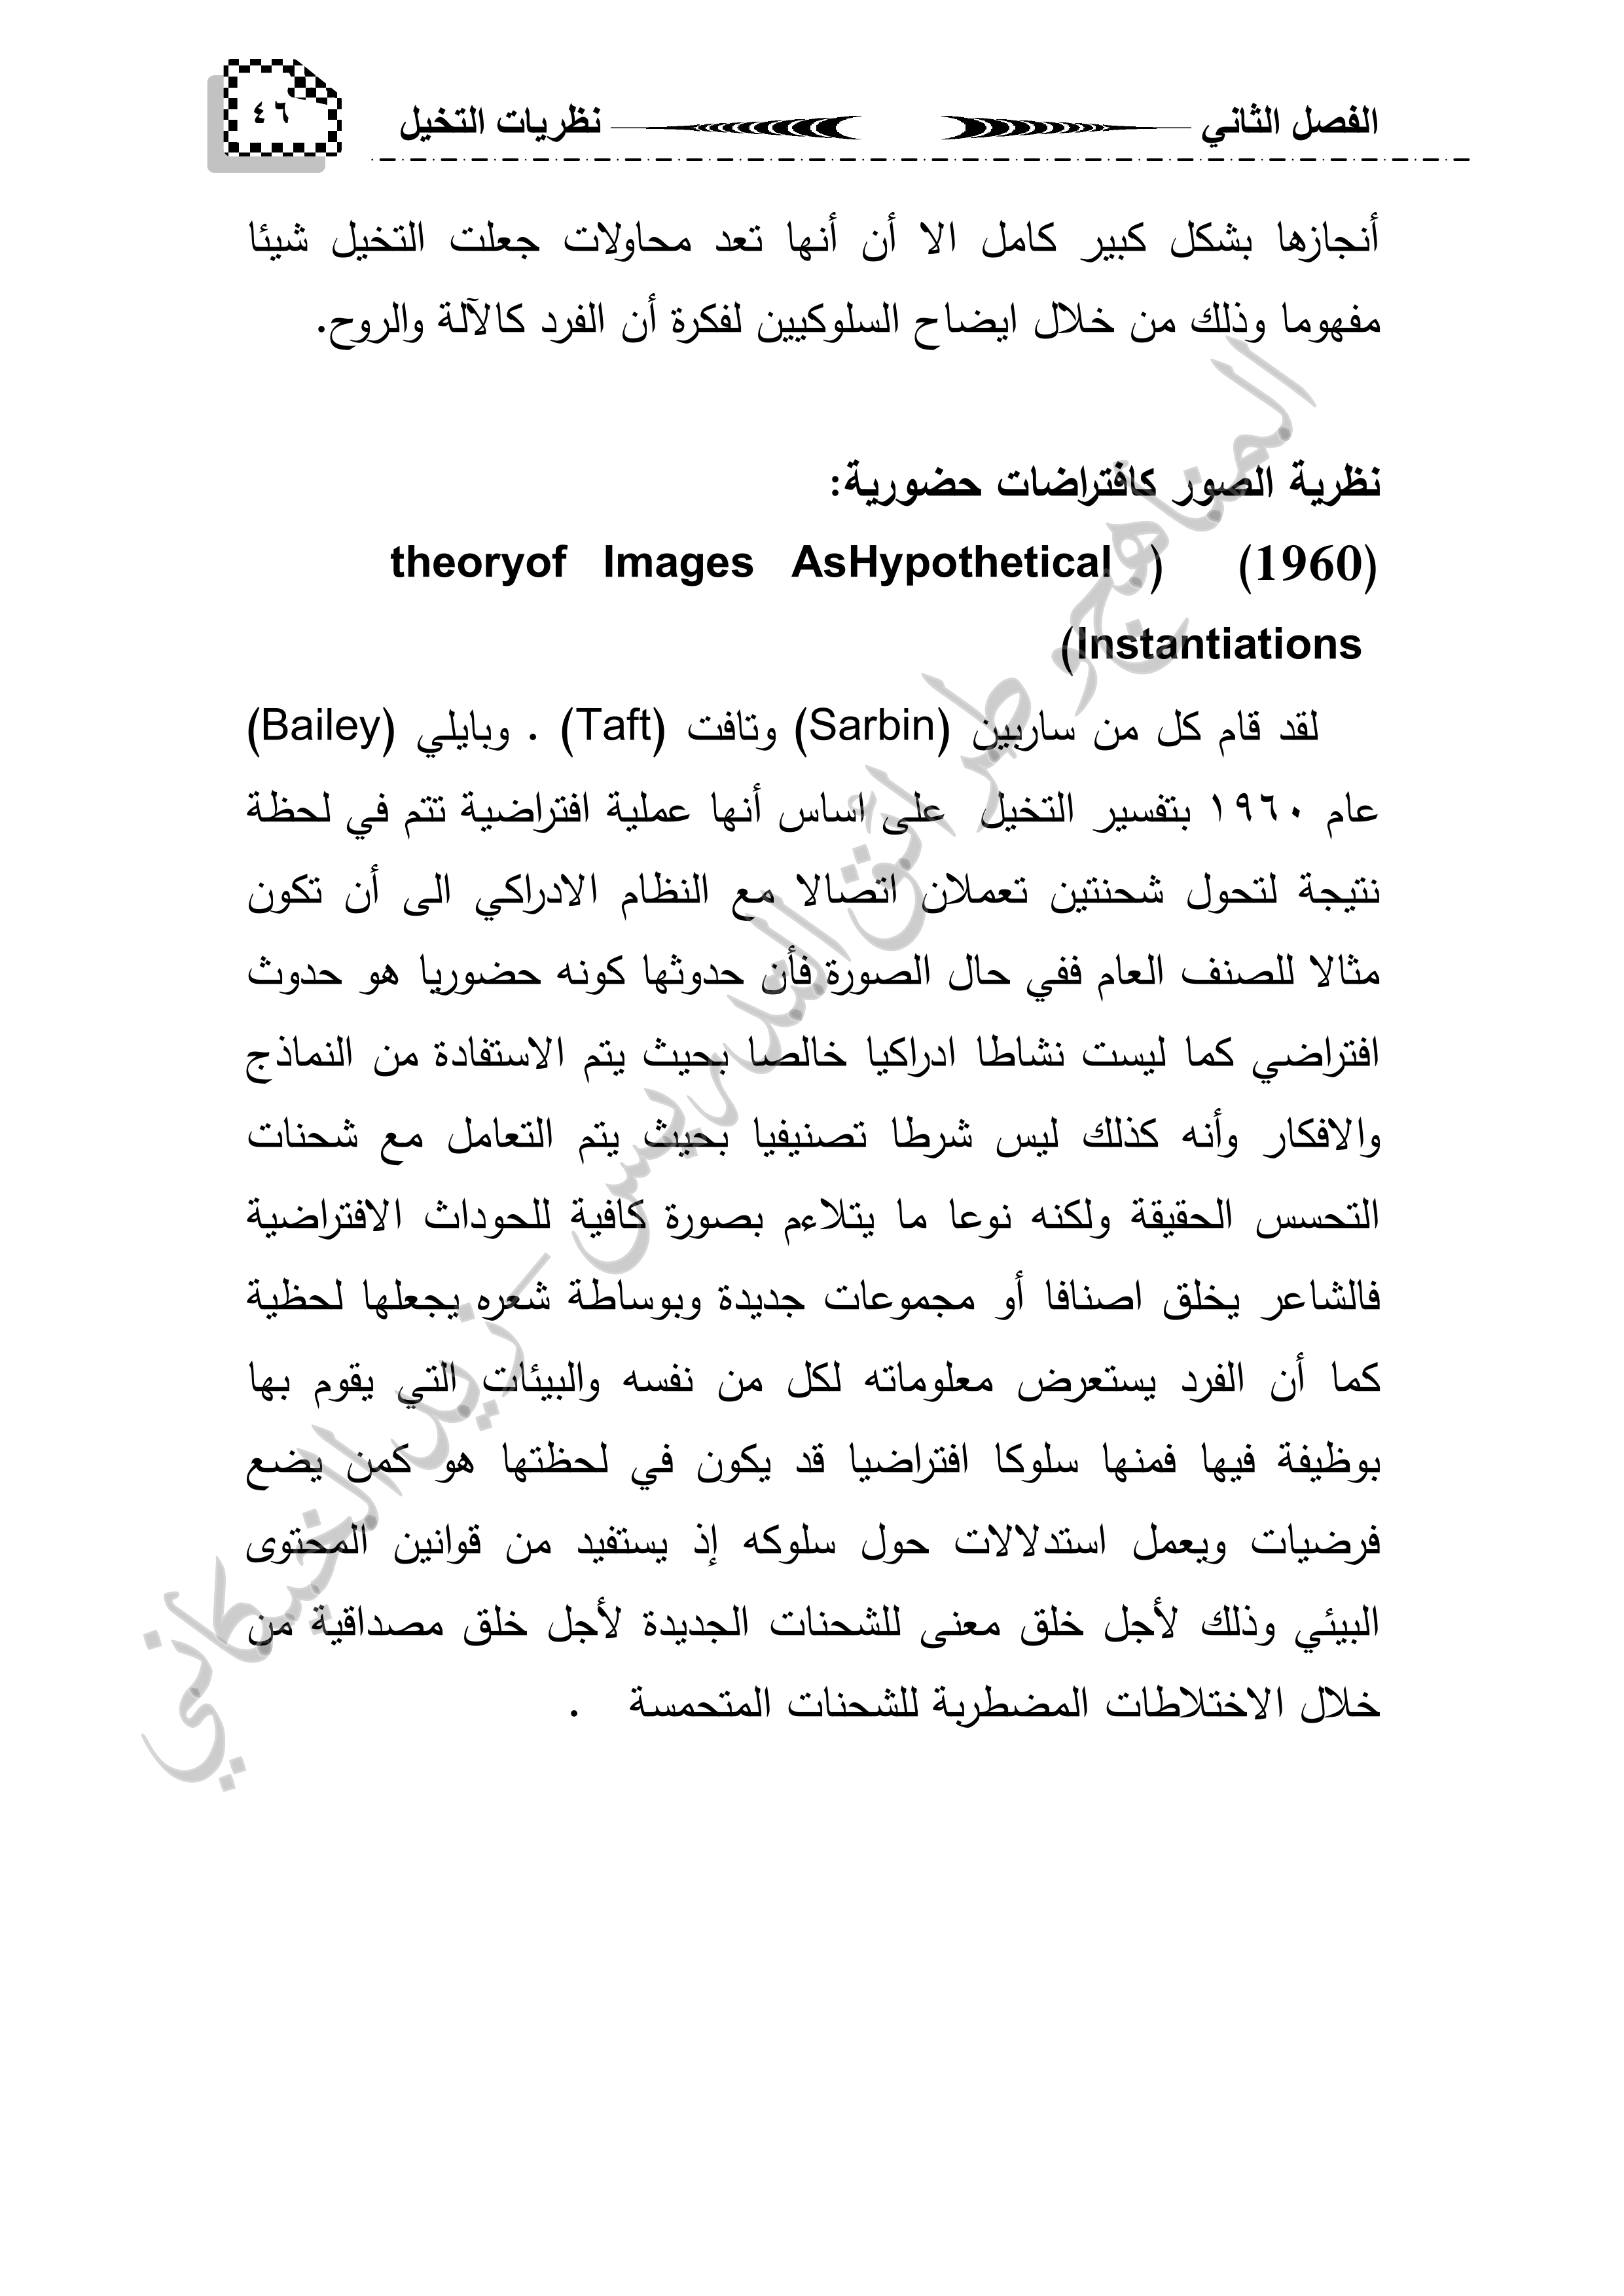 الفصل الثاني نظريات التخيل ٤٦
أنجازها بشكل كبير كامل الا أن أنها تعد محاولات جعلت التخيل شيئا
مفهوما وذلك من خلال ايضاح السلوكيين لفكرة أن الفرد كالآلة والروح.
نظرية الصور كافتراضات حضورية:
(1960) ( theoryof Images AsHypothetical
Instantiations)
لقد قام كل من ساربين (Sarbin) وتافت (Taft) . وبايلي (Bailey)
عام ١٩٦٠ بتفسير التخيل على اساس أنها عملية افتراضية تتم في لحظة
نتيجة لتحول شحنتين تعملان اتصالا مع النظام الادراكي الى أن تكون
مثالا للصنف العام ففي حال الصورة فأن حدوثها كونه حضوريا هو حدوث
افتراضي كما ليست نشاطا ادراكيا خالصا بحيث يتم الاستفادة من النماذج
والافكار وأنه كذلك ليس شرطا تصنيفيا بحيث يتم التعامل مع شحنات
التحسس الحقيقة ولكنه نوعا ما يتلاءم بصورة كافية للحوداث الافتراضية
فالشاعر يخلق اصنافا أو مجموعات جديدة وبوساطة شعره يجعلها لحظية
كما أن الفرد يستعرض معلوماته لكل من نفسه والبيئات التي يقوم بها
بوظيفة فيها فمنها سلوكا افتراضيا قد يكون في لحظتها هو كمن يضع
فرضيات ويعمل استدلالات حول سلوكه إذ يستفيد من قوانين المحتوى
البيئي وذلك لأجل خلق معنى للشحنات الجديدة لأجل خلق مصداقية من
خلال الاختلاطات المضطربة للشحنات المتحمسة .
المناهج وطرائق التدريس – زيد الخيكاني